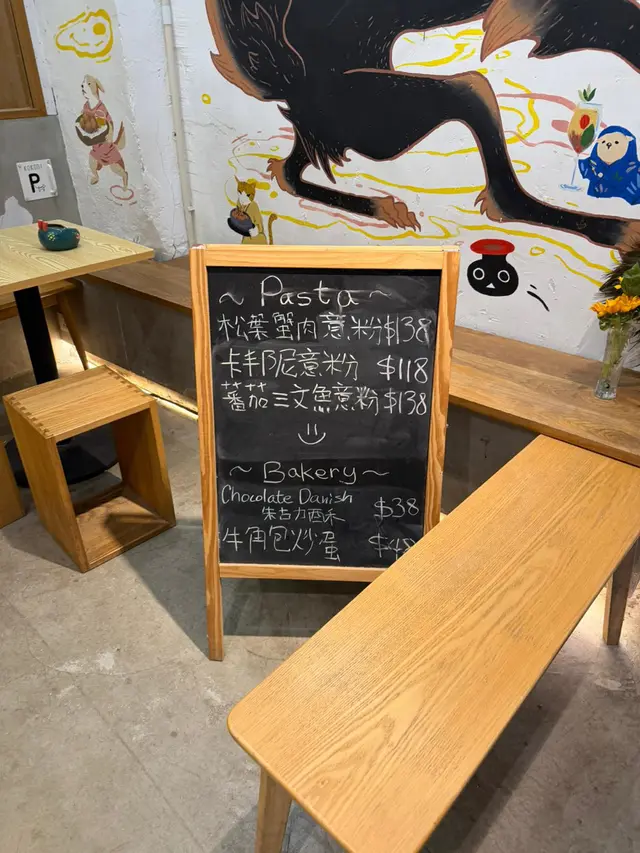 P
~ Pasta ~
松葉蟹肉意粉$138
卡邦尼意粉 $118
蕃茄三文魚意粉$138
~ Bakery ~
Chocolate Danish $38
朱古力酉禾
牛角包炒蛋 $48